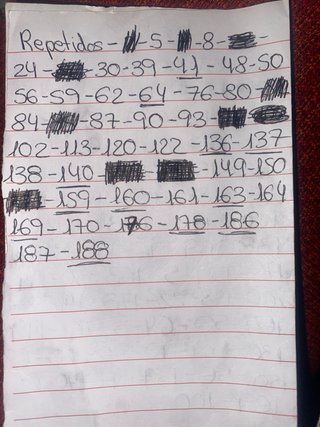 Repetidos - 5 - 8 -
24 - 30 - 39 - 41 - 48 - 50
56 - 59 - 62 - 64 - 76 - 80 -
84 - 87 - 90 - 93 -
102 - 113 - 120 - 122 - 136 - 137
138 - 140 - 149 - 150
- 159 - 160 - 161 - 163 - 164
169 - 170 - 176 - 178 - 186
187 - 188